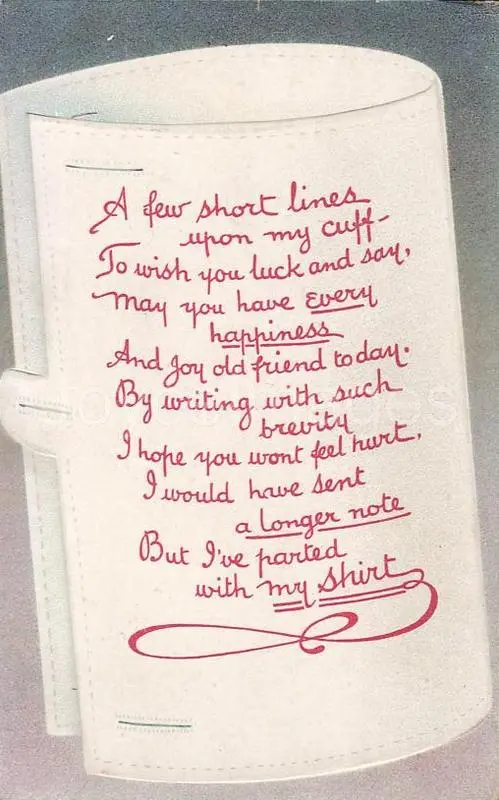 A few short lines
upon my cuff-
To wish you luck and say,
May you have every
happiness
And Joy old friend today.
By writing with such
brevity
I hope you wont feel hurt,
I would have sent
a longer note
But I've parted
with my shirt